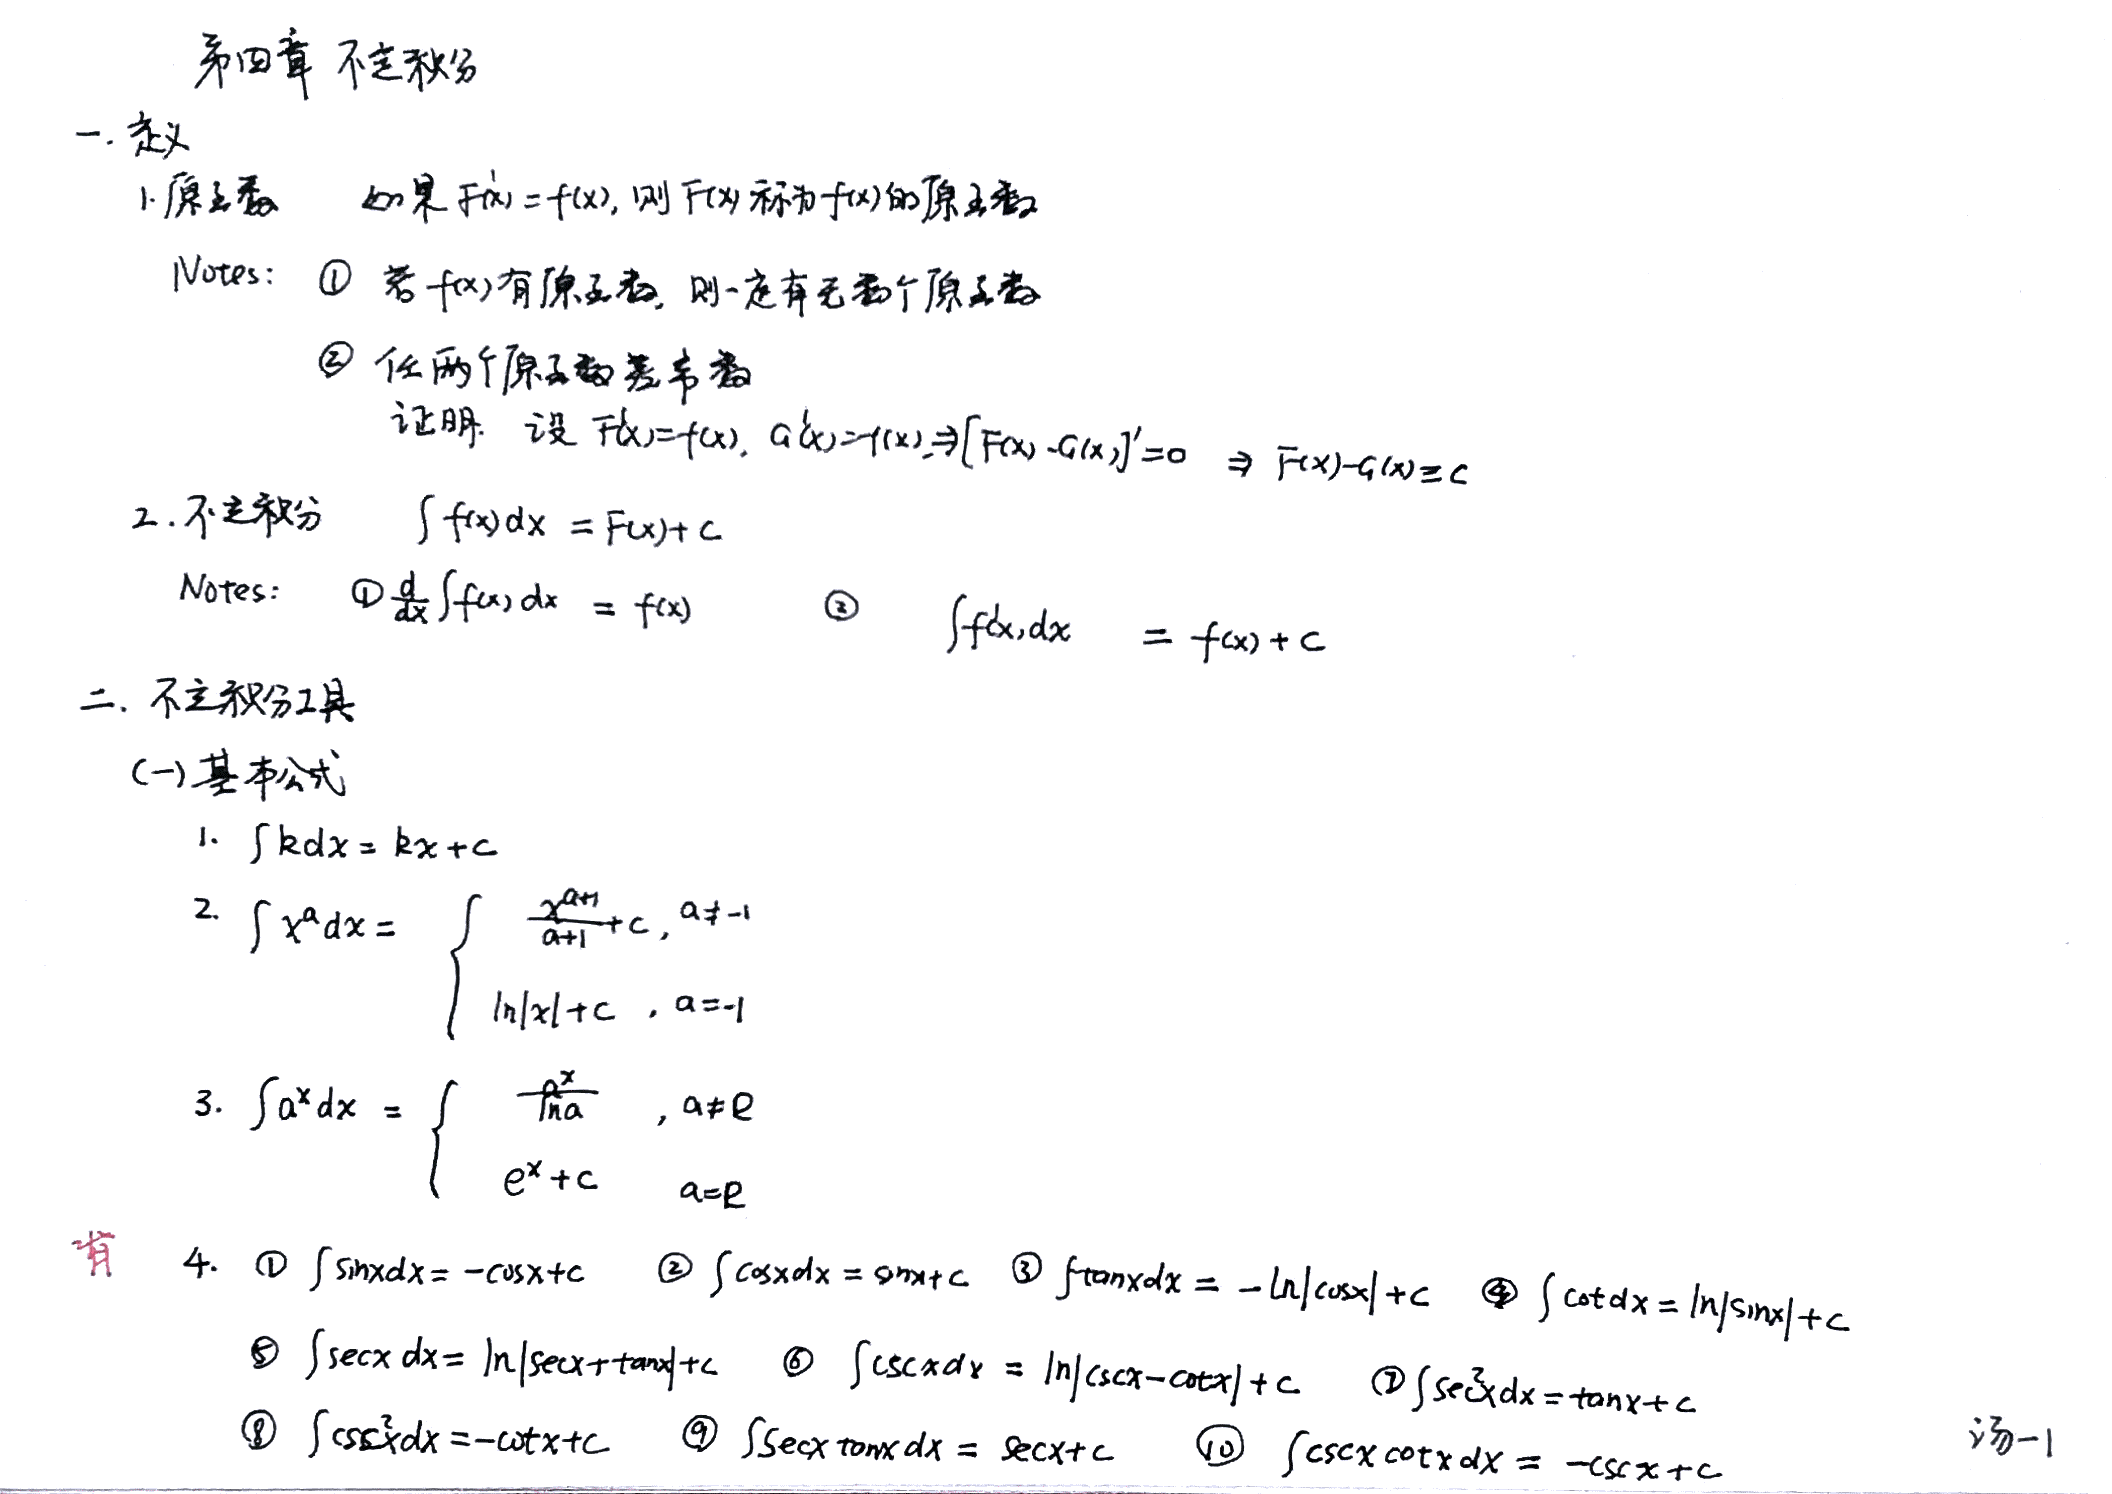 第四章 不定积分
一. 定义
1. 原函数 如果 F'(x) = f(x), 则 F(x) 称为 f(x) 的原函数
Notes: ① 若 f(x) 有原函数, 则一定有无数个原函数
② 任两个原函数差常数
证明. 设 F'(x)=f(x), G'(x)=f(x), ⇒ [F(x)-G(x)]'=0 ⇒ F(x)-G(x)≡C
2. 不定积分 ∫f(x)dx = F(x)+C
Notes: ① d/dx ∫f(x)dx = f(x) ② ∫f'(x)dx = f(x)+C
二. 不定积分工具
(一) 基本公式
1. ∫kdx = kx+C
2. ∫x^a dx = { x^(a+1)/(a+1) +C, a≠-1
ln|x|+C, a=-1
3. ∫a^x dx = { a^x/lna , a≠e
e^x+C a=e
背 4. ① ∫sinxdx = -cosx+C ② ∫cosxdx = sinx+C ③ ∫tanxdx = -ln|cosx|+C ④ ∫cotdx = ln|sinx|+C
⑤ ∫secxdx = ln|secx+tanx|+C ⑥ ∫cscxdx = ln|cscx-cotx|+C ⑦ ∫sec²xdx = tanx+C
⑧ ∫csc²xdx = -cotx+C ⑨ ∫secxtanxdx = secx+C ⑩ ∫cscxcotxdx = -cscx+C
汤-1